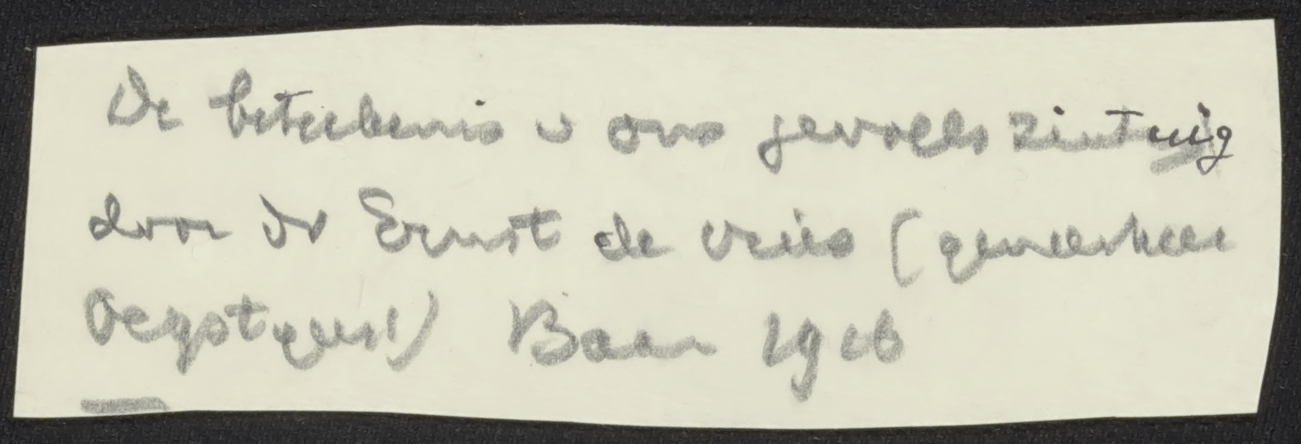 De beteekenis v ons gevoels zintuig
door Dr Ernst de Vries (geneesheer
Oegstgeest) Baarn 1916